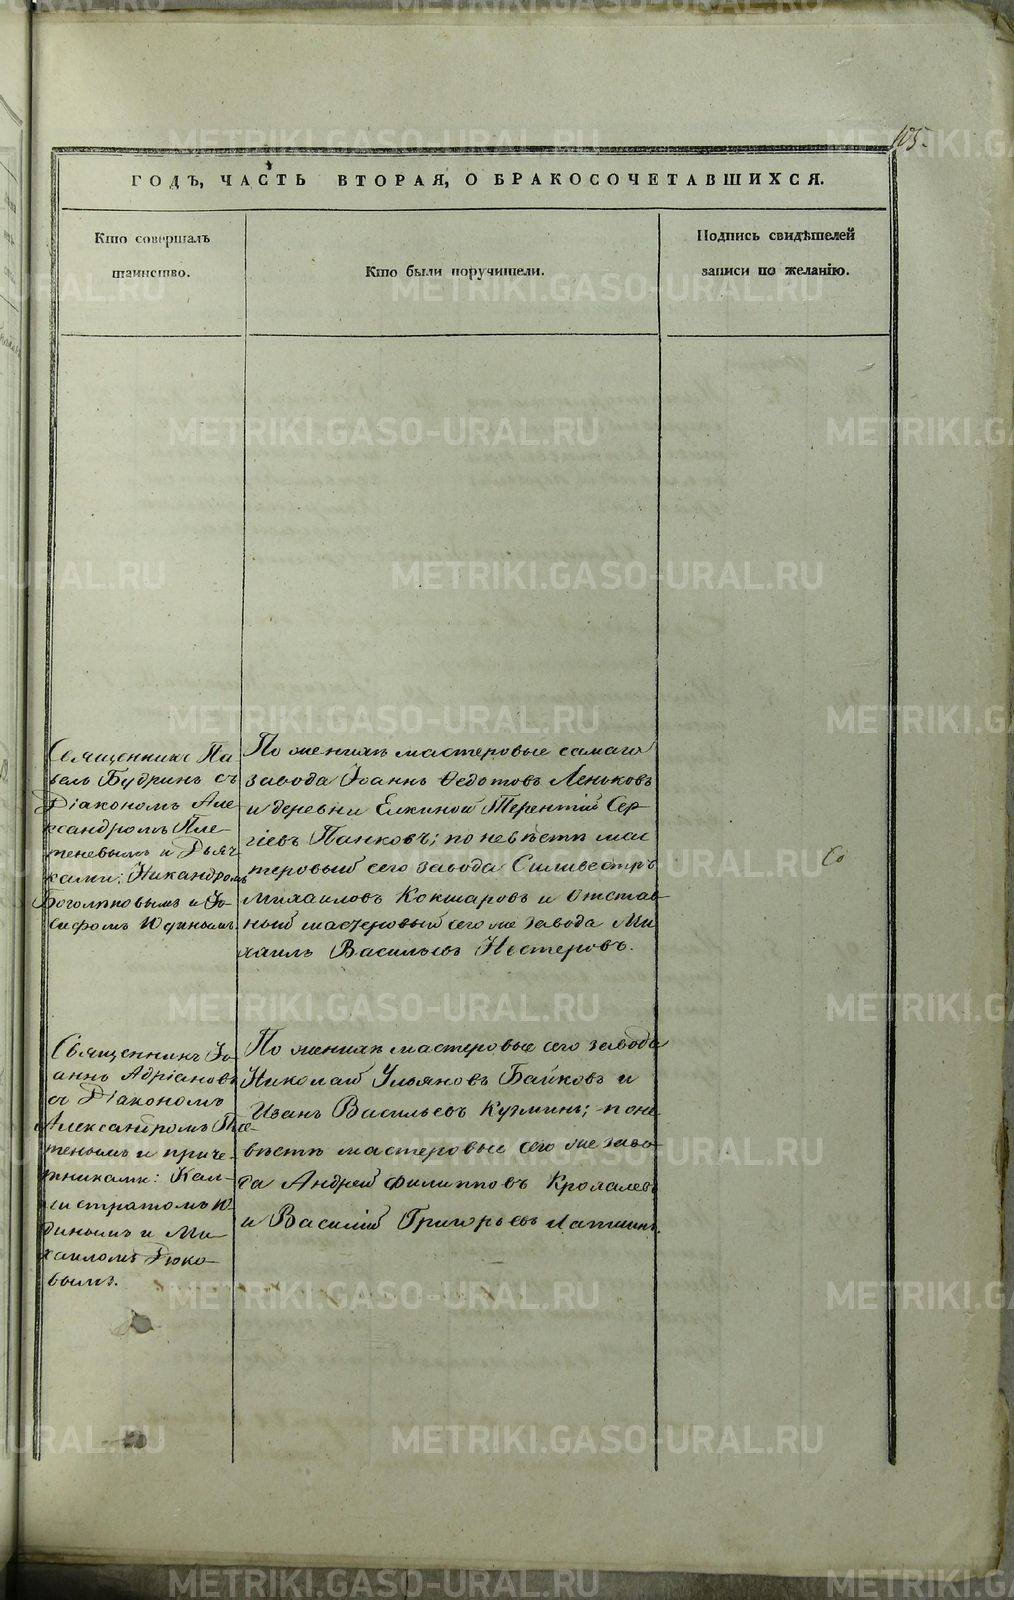 105.
ГОДЪ, ЧАСТЬ ВТОРАЯ, О БРАКОСОЧЕТАВШИХСЯ.
Кто совершалъ
таинство.
Кто были поручители.
Подпись свидѣтелей
записи по желанію.
Священникъ Па-
велъ Будринъ съ
Діакономъ Але-
ксандромъ Пле-
теневымъ и Дьяч-
ками: Никандромъ
Боголѣповымъ и Іо-
сифомъ Юдинымъ.
По женихѣ мастеровые самаго
завода Іоаннъ Ѳедотовъ Леньковъ
и деревни Елкиной Терентій Сер-
гіевъ Панковъ; по невѣстѣ мас
теровый сего завода Сильвестръ
Михаиловъ Кокшаровъ и отстав-
ный мастеровый сего же завода Ми-
хаилъ Васильевъ Нестеровъ.
Со
Священникъ Іо-
аннъ Адріановъ
съ Діакономъ
Александромъ Пле-
теневымъ и приче-
тниками: Кал-
листратомъ Ю-
динымъ и Ми-
хаиломъ
вымъ.
По женихѣ мастеровые сего завода
Николай Ульяновъ Байковъ и
Иванъ Васильевъ Кузминъ; по не-
вѣстѣ мастеровые сего же заво-
да Андрей Филипповъ Кролалевъ
и Василій Григорьевъ Лапшинъ.
METRIKI.GASO-URAL.RU